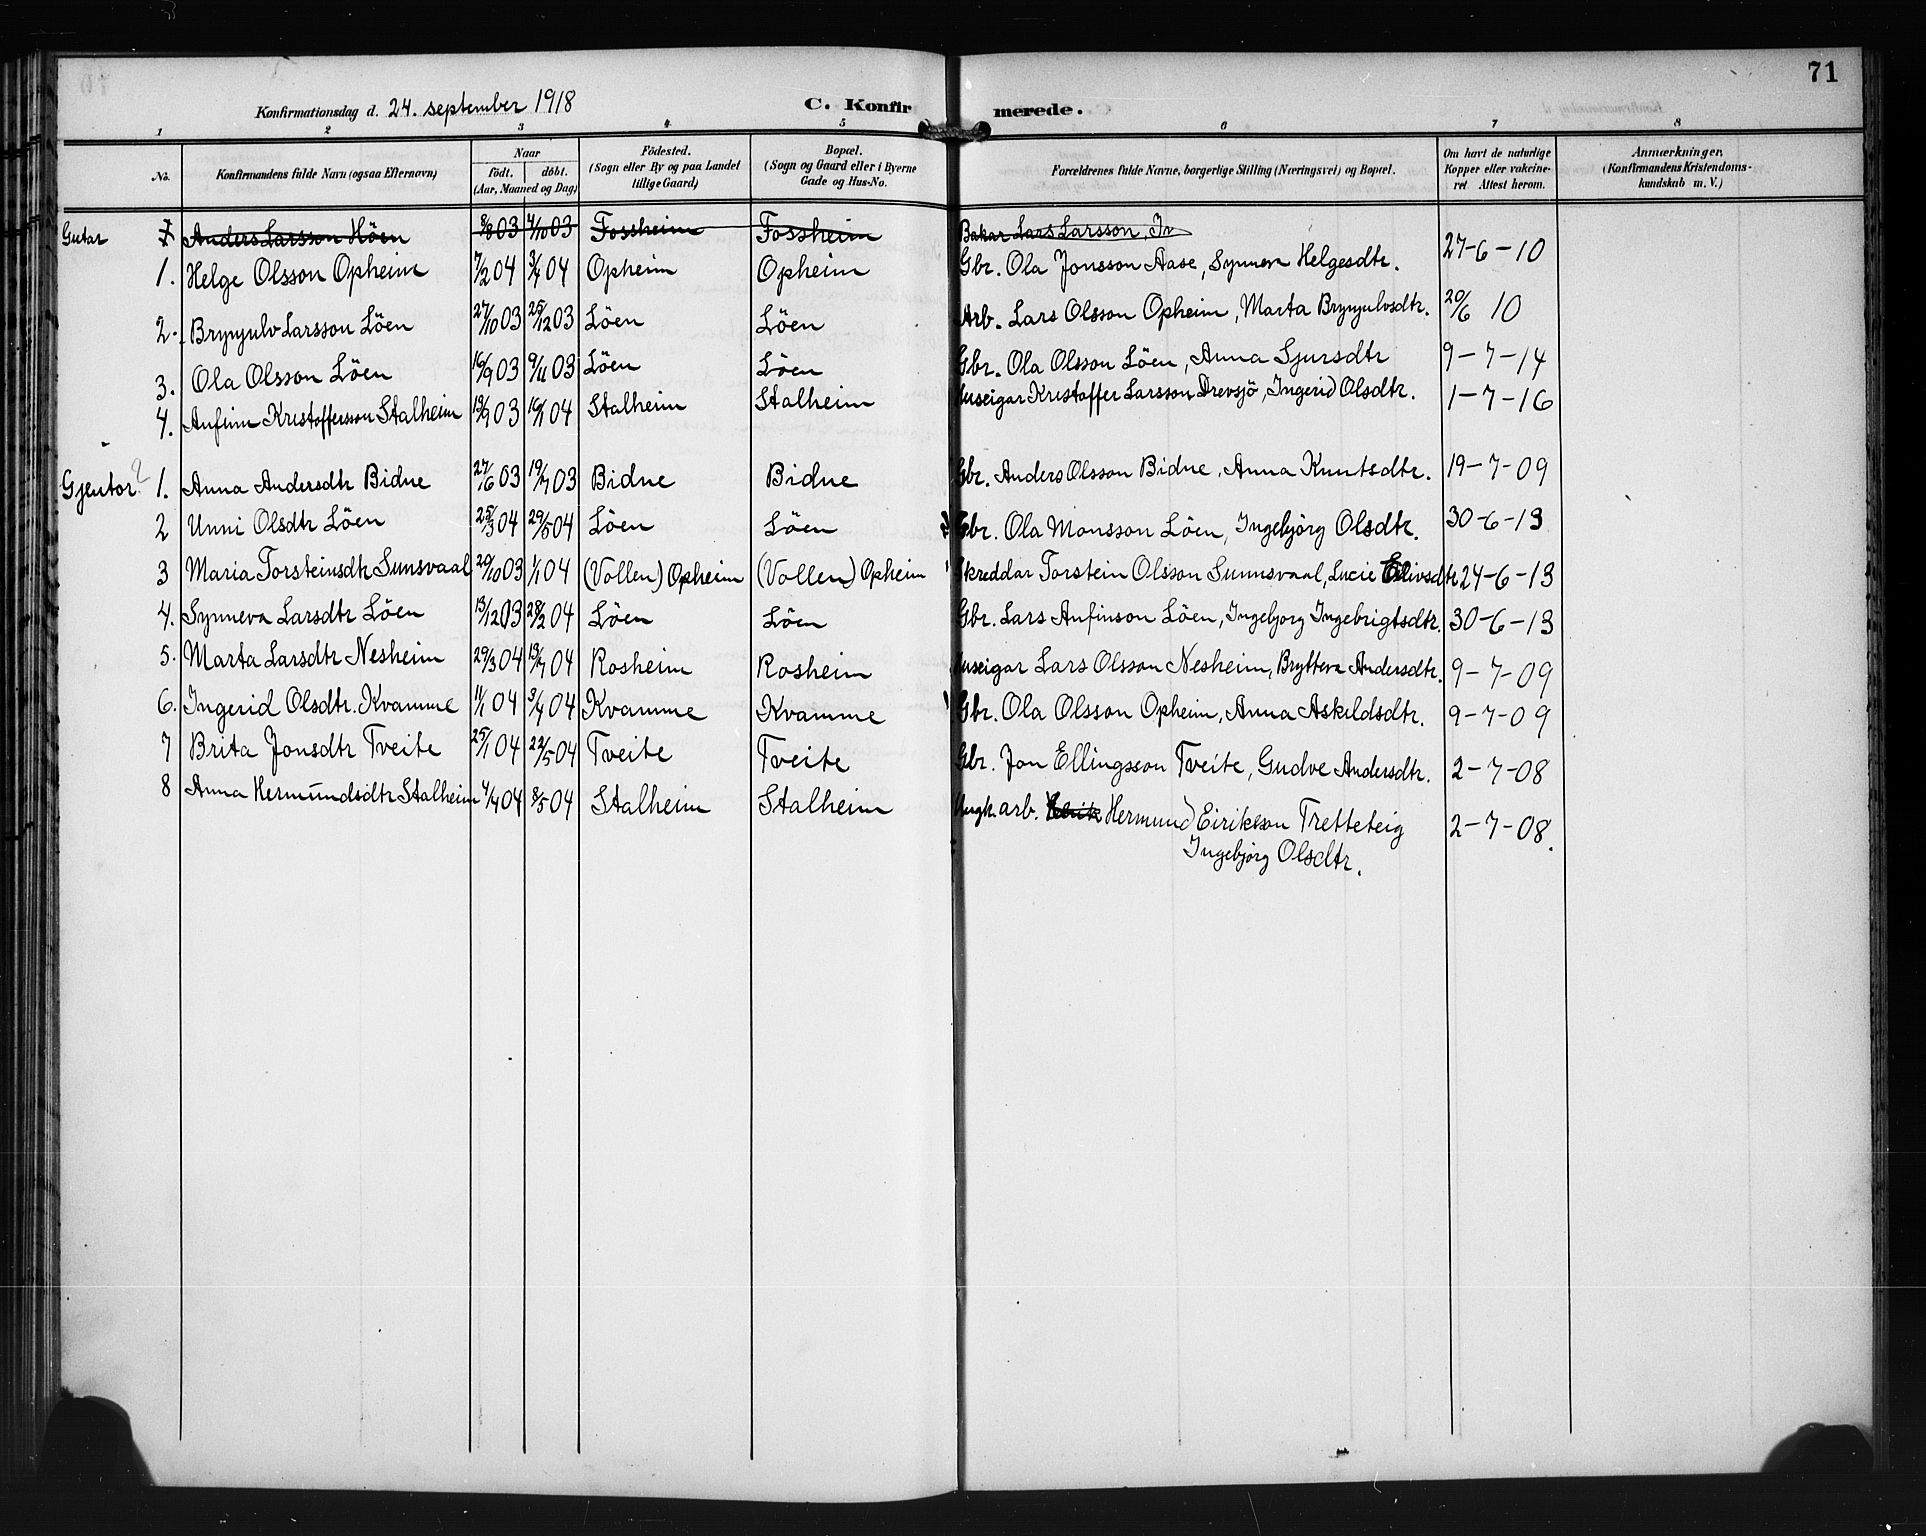 71
Konfirmationsdag d. 24. september 1918
C. Konfirmerede.
1 2 3 4 5 6 7 8
No. Konfirmandens fulde Navn (ogsaa Efternavn) Naar født. døbt. (Aar, Maaned og Dag) Fødested. (Sogn eller By og paa Landet tillige Gaard) Bopæl. (Sogn og Gaard eller i Byerne Gade og Hus-No. Forældrenes fulde Navne, borgerlige Stilling (Næringsvei) og Bopæl. Om havt de naturlige Kopper eller vakcineret. Attest herom. Anmærkninger. (Konfirmandens Kristendomskundskab m. V.)
Gutar Anders Larsson Höen 8/8 03 4/10 03 Fossheim Fossheim Bakar Lars Larsson, In
1. Helge Olsson Opheim 7/2 04 3/4 04 Opheim Opheim Gbr. Ola Jonsson Aase, Synneva Helgesdtr. 27-6-10
2. Brynjulv Larsson Löen 27/10 03 25/12 03 Löen Löen Arb. Lars Olsson Opheim, Marta Brynjulvsdtr. 20/6 10
3. Ola Olsson Löen 16/9 03 9/11 03 Löen Löen Gbr. Ola Olsson Löen, Anna Sjursdtr 9-7-14
4. Anfinn Kristoffersson Stalheim 13/9 03 16/1 04 Stalheim Stalheim Huseigar Kristoffer Larsson Drevsjö, Ingerid Olsdtr. 1-7-16
Gjentor? 1. Anna Andersdtr Bidne 27/6 03 19/7 03 Bidne Bidne Gbr. Anders Olsson Bidne, Anna Knutsdtr. 19-7-09
2 Unni Olsdtr Löen 25/3 04 29/5 04 Löen Löen Gbr. Ola Monsson Löen, Ingebjörg Olsdtr. 30-6-13
3 Maria Torsteinsdtr Sunnsvaal 20/10 03 1/1 04 (Vollen) Opheim (Vollen) Opheim Skreddar Torstein Olsson Sunnsvaal, Lucie Eilivsdtr 24-6-13
4. Synneva Larsdtr Löen 13/12 03 28/2 04 Löen Löen Gbr. Lars Anfinson Löen, Ingebjorg Ingebrigtsdtr. 30-6-13
5. Marta Larsdtr Nesheim 29/3 04 13/7 04 Rosheim Rosheim Huseigar Lars Olsson Nesheim, Brytteva Andersdtr. 9-7-09
6. Ingerid Olsdtr. Kvamme 11/1 04 3/4 04 Kvamme Kvamme Gbr. Ola Olsson Opheim, Anna Askildsdtr. 9-7-09
7 Brita Jonsdtr Tveite 25/1 04 22/5 04 Tveite Tveite Gbr. Jon Ellingsson Tveite, Gudve Andersdtr. 2-7-08
8 Anna Hermundsdtr Stalheim 4/4 04 8/5 04 Stalheim Stalheim Ungk. arb. Hermund Eirikson Tretteteig 2-7-08.
Ingebjörg Olsdtr.